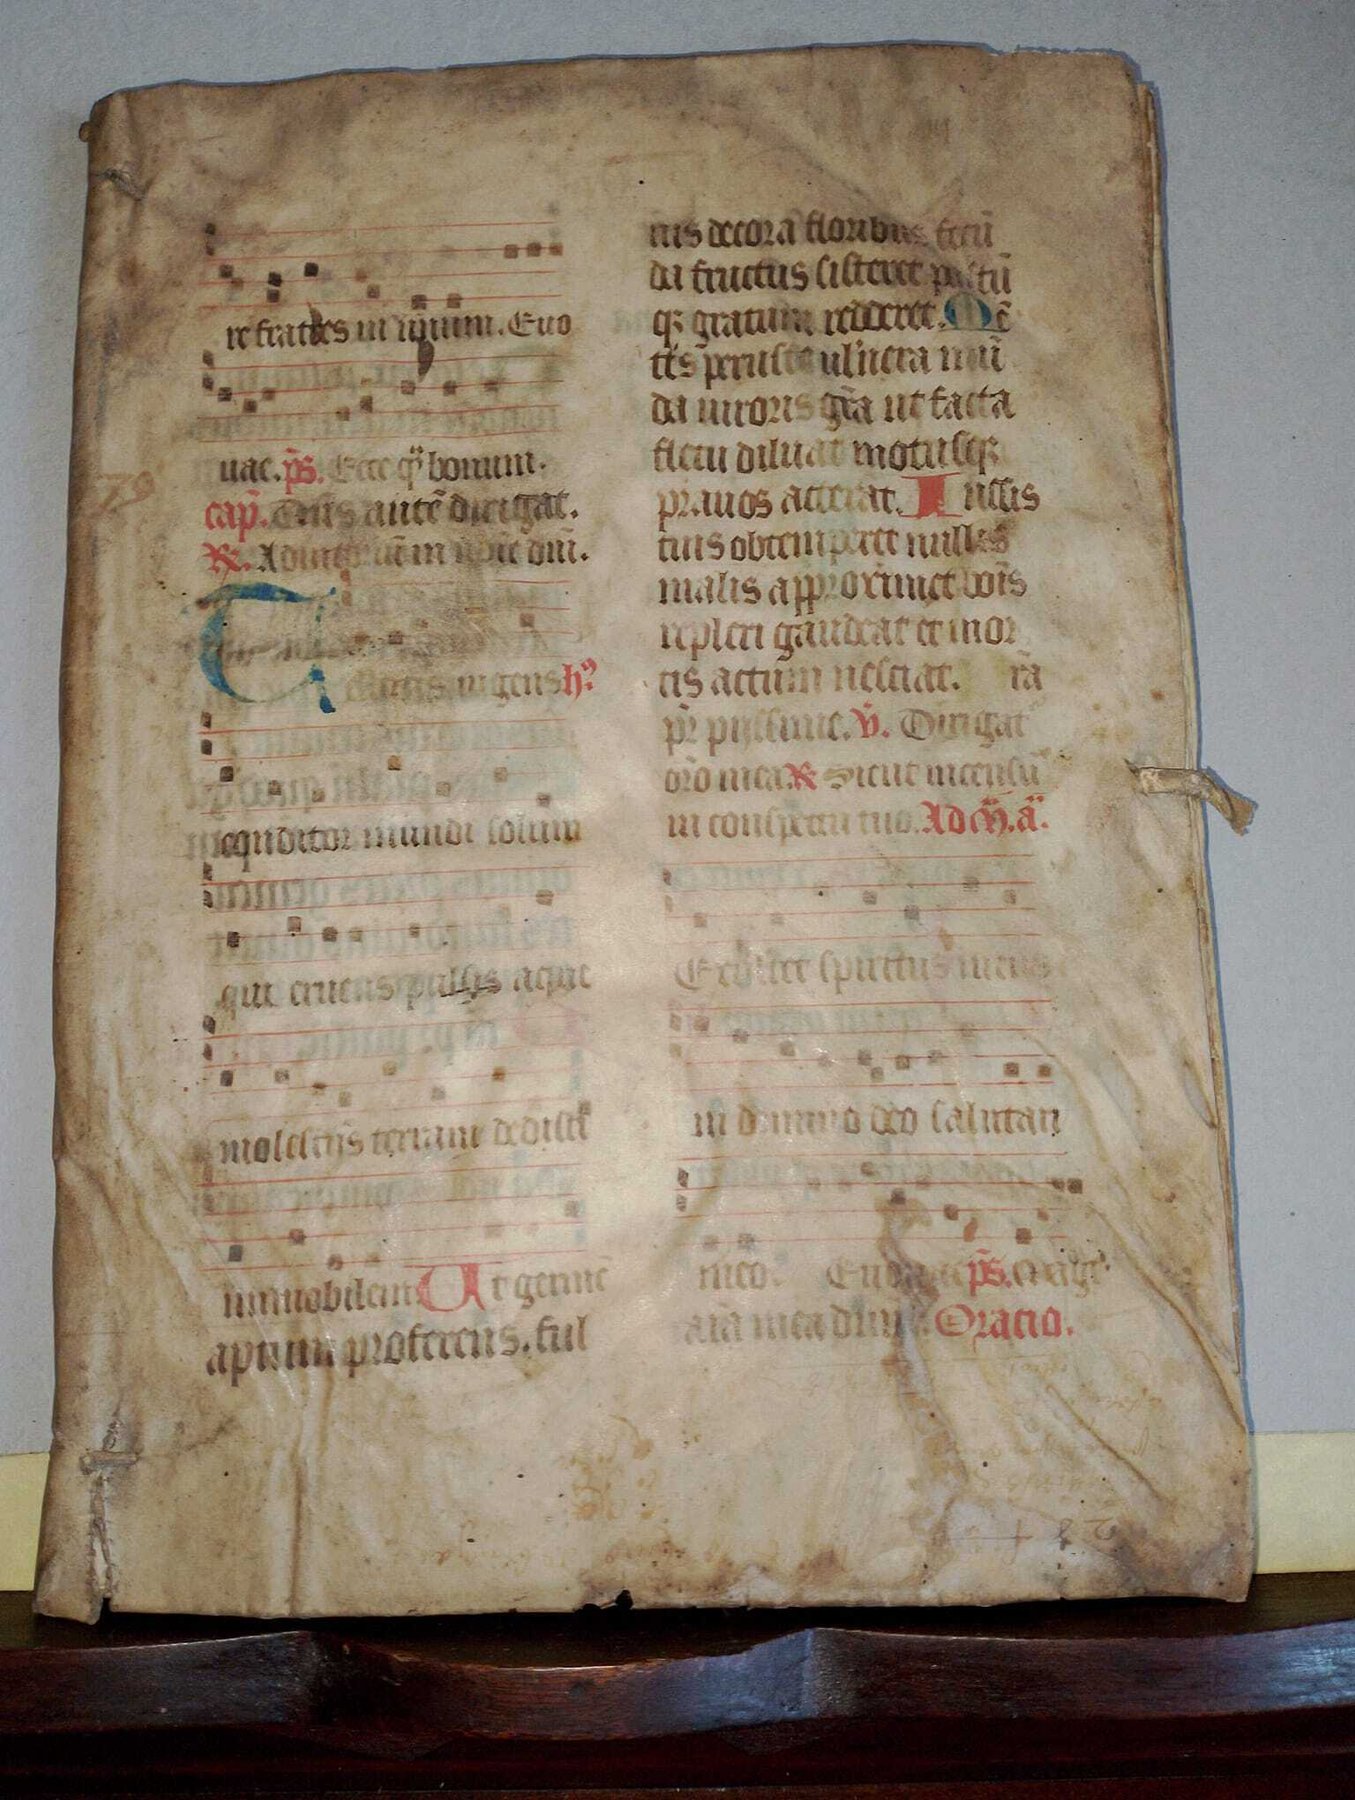 re fratres in unum. Euo
uae. p̄s. Ecce q̄ bonum.
cap̄. Dn̄s autē dirigat.
R. Adiutoriū in noīe dn̄i.
Telluris ingens h⁹.
conditor mundi solum
qui eruens pulsis aque
molestijs terram dedisti
immobilem Ut germē
aptum proferens. ful
uis decora floribus fecū
da fructus sisteret pastū
q; gratum redderet. Mē
tis peruste uulnera mū
da uiroris grā ut facta
fletu diluat motusq;
prauos atterat. Iussis
tuis obtemperet nullis
malis approximet bonis
repleri gaudeat et mor
tis actum nesciat. rā
pr̄ pijssime. V̄. Dirigat
or̄o mea. R Sicut incensū
in conspectu tuo. Ad M. a.
Exultet spiritus meus
in domino deo salutari
meo. Euouae p̄s.
aīa mea dn̄m. Oratio.
79